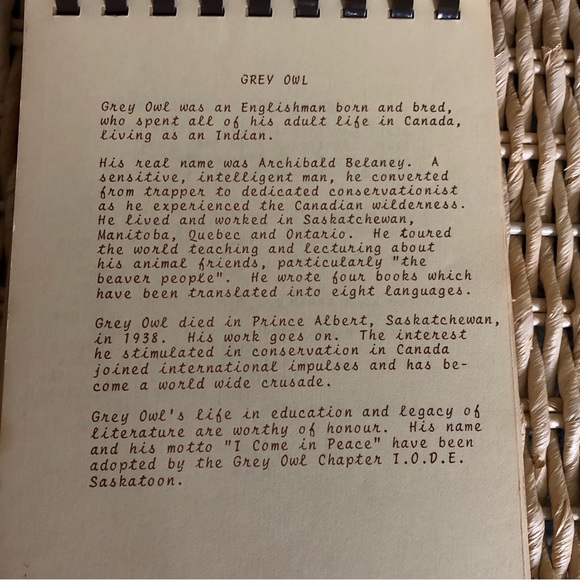 GREY OWL
Grey Owl was an Englishman born and bred,
who spent all of his adult life in Canada,
living as an Indian.
His real name was Archibald Belaney. A
sensitive, intelligent man, he converted
from trapper to dedicated conservationist
as he experienced the Canadian wilderness.
He lived and worked in Saskatchewan,
Manitoba, Quebec and Ontario. He toured
the world teaching and lecturing about
his animal friends, particularly "the
beaver people". He wrote four books which
have been translated into eight languages.
Grey Owl died in Prince Albert, Saskatchewan,
in 1938. His work goes on. The interest
he stimulated in conservation in Canada
joined international impulses and has be-
come a world wide crusade.
Grey Owl's life in education and legacy of
literature are worthy of honour. His name
and his motto "I Come in Peace" have been
adopted by the Grey Owl Chapter I.O.D.E.
Saskatoon.